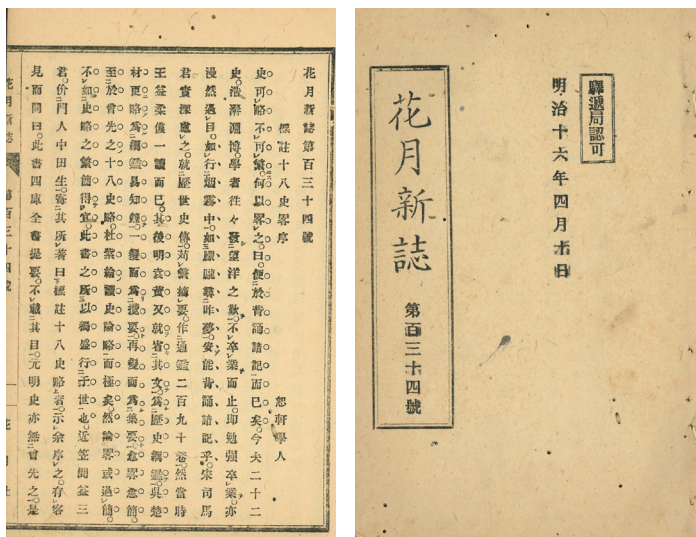 驛遞局認可
明治十六年四月十日
花月新誌
第百三十四號
花月新誌第百三十四號
標註十八史畧序
恕軒學人
史可略。不可繁。何以畧之。曰便於背誦諳記而已矣。今夫二十二
史。浩澣淵博。學者往々發望洋之歎。不卒業而止。即勉强卒業。亦
漫然過目。如行烟霧中。如朦朧尋昨夢。安能背誦諳記乎。宋司馬
君實深慮之。就歷世史傳。苅繁摘要。作通鑑二百九十卷。然當時
王益柔僅一讀而已。其後明袁黃又就省其文。爲歷史綱鑑。吳楚
材更略爲綱鑑易知錄。一變而爲攬要。再變而爲集要。愈畧愈簡。
至於曾先之十八史略。杜紫綸讀史論略而極矣。然論畧或過簡。
不如史略之繁簡得宜。此書之所以獨盛行于世也。近笠間益三
君。价門人中田生。寄其所著曰標註十八史略者。示余序之。有客
見而問曰。此書四庫全書提要。不載其目。元明史亦無曾先之。是
花月新誌 第百三十四號 一 花月社